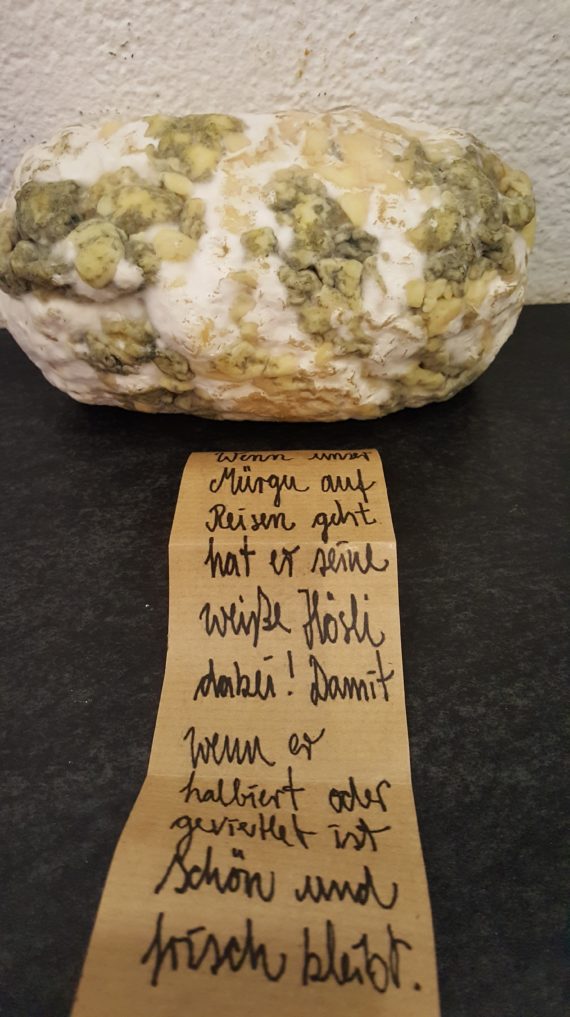 Wenn unser
Mürgu auf
Reisen geht
hat er seine
weiße Hösli
dabei! Damit
wenn er
halbiert oder
geviertlet ist
Schön und
frisch bleibt.